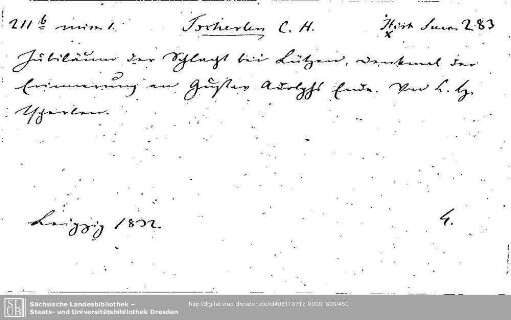 211 b misc. 1. Tscherlen C. H. Hist. Suec. 283
Jubiläum der Schlacht bei Lützen, Denkmal der
Erinnerung an Gustav Adolphs Ende. Von C. H.
Tscherlen.
Leipzig 1832. 4.
Sächsische Landesbibliothek –
Staats- und Universitätsbibliothek Dresden